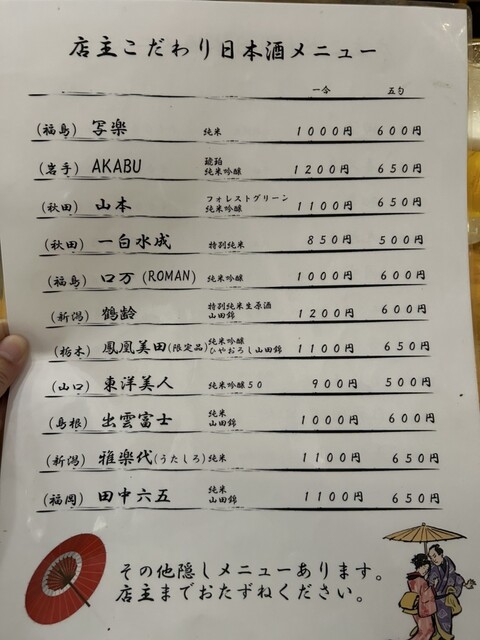 店主こだわり日本酒メニュー
一合 五勺
(福島) 写楽 純米 1000円 600円
(岩手) AKABU 琥珀 純米吟醸 1200円 650円
(秋田) 山本 フォレストグリーン 純米吟醸 1100円 650円
(秋田) 一白水成 特別純米 850円 500円
(福島) ロ万 (ROMAN) 純米吟醸 1000円 600円
(新潟) 鶴齢 特別純米生原酒 山田錦 1200円 600円
(栃木) 鳳凰美田(限定品) 純米吟醸 ひやおろし山田錦 1100円 650円
(山口) 東洋美人 純米吟醸50 900円 500円
(島根) 出雲富士 純米 山田錦 1000円 600円
(新潟) 雅楽代(うたしろ) 純米 1100円 650円
(福岡) 田中六五 純米 山田錦 1100円 650円
その他隠しメニューあります。
店主までおたずねください。